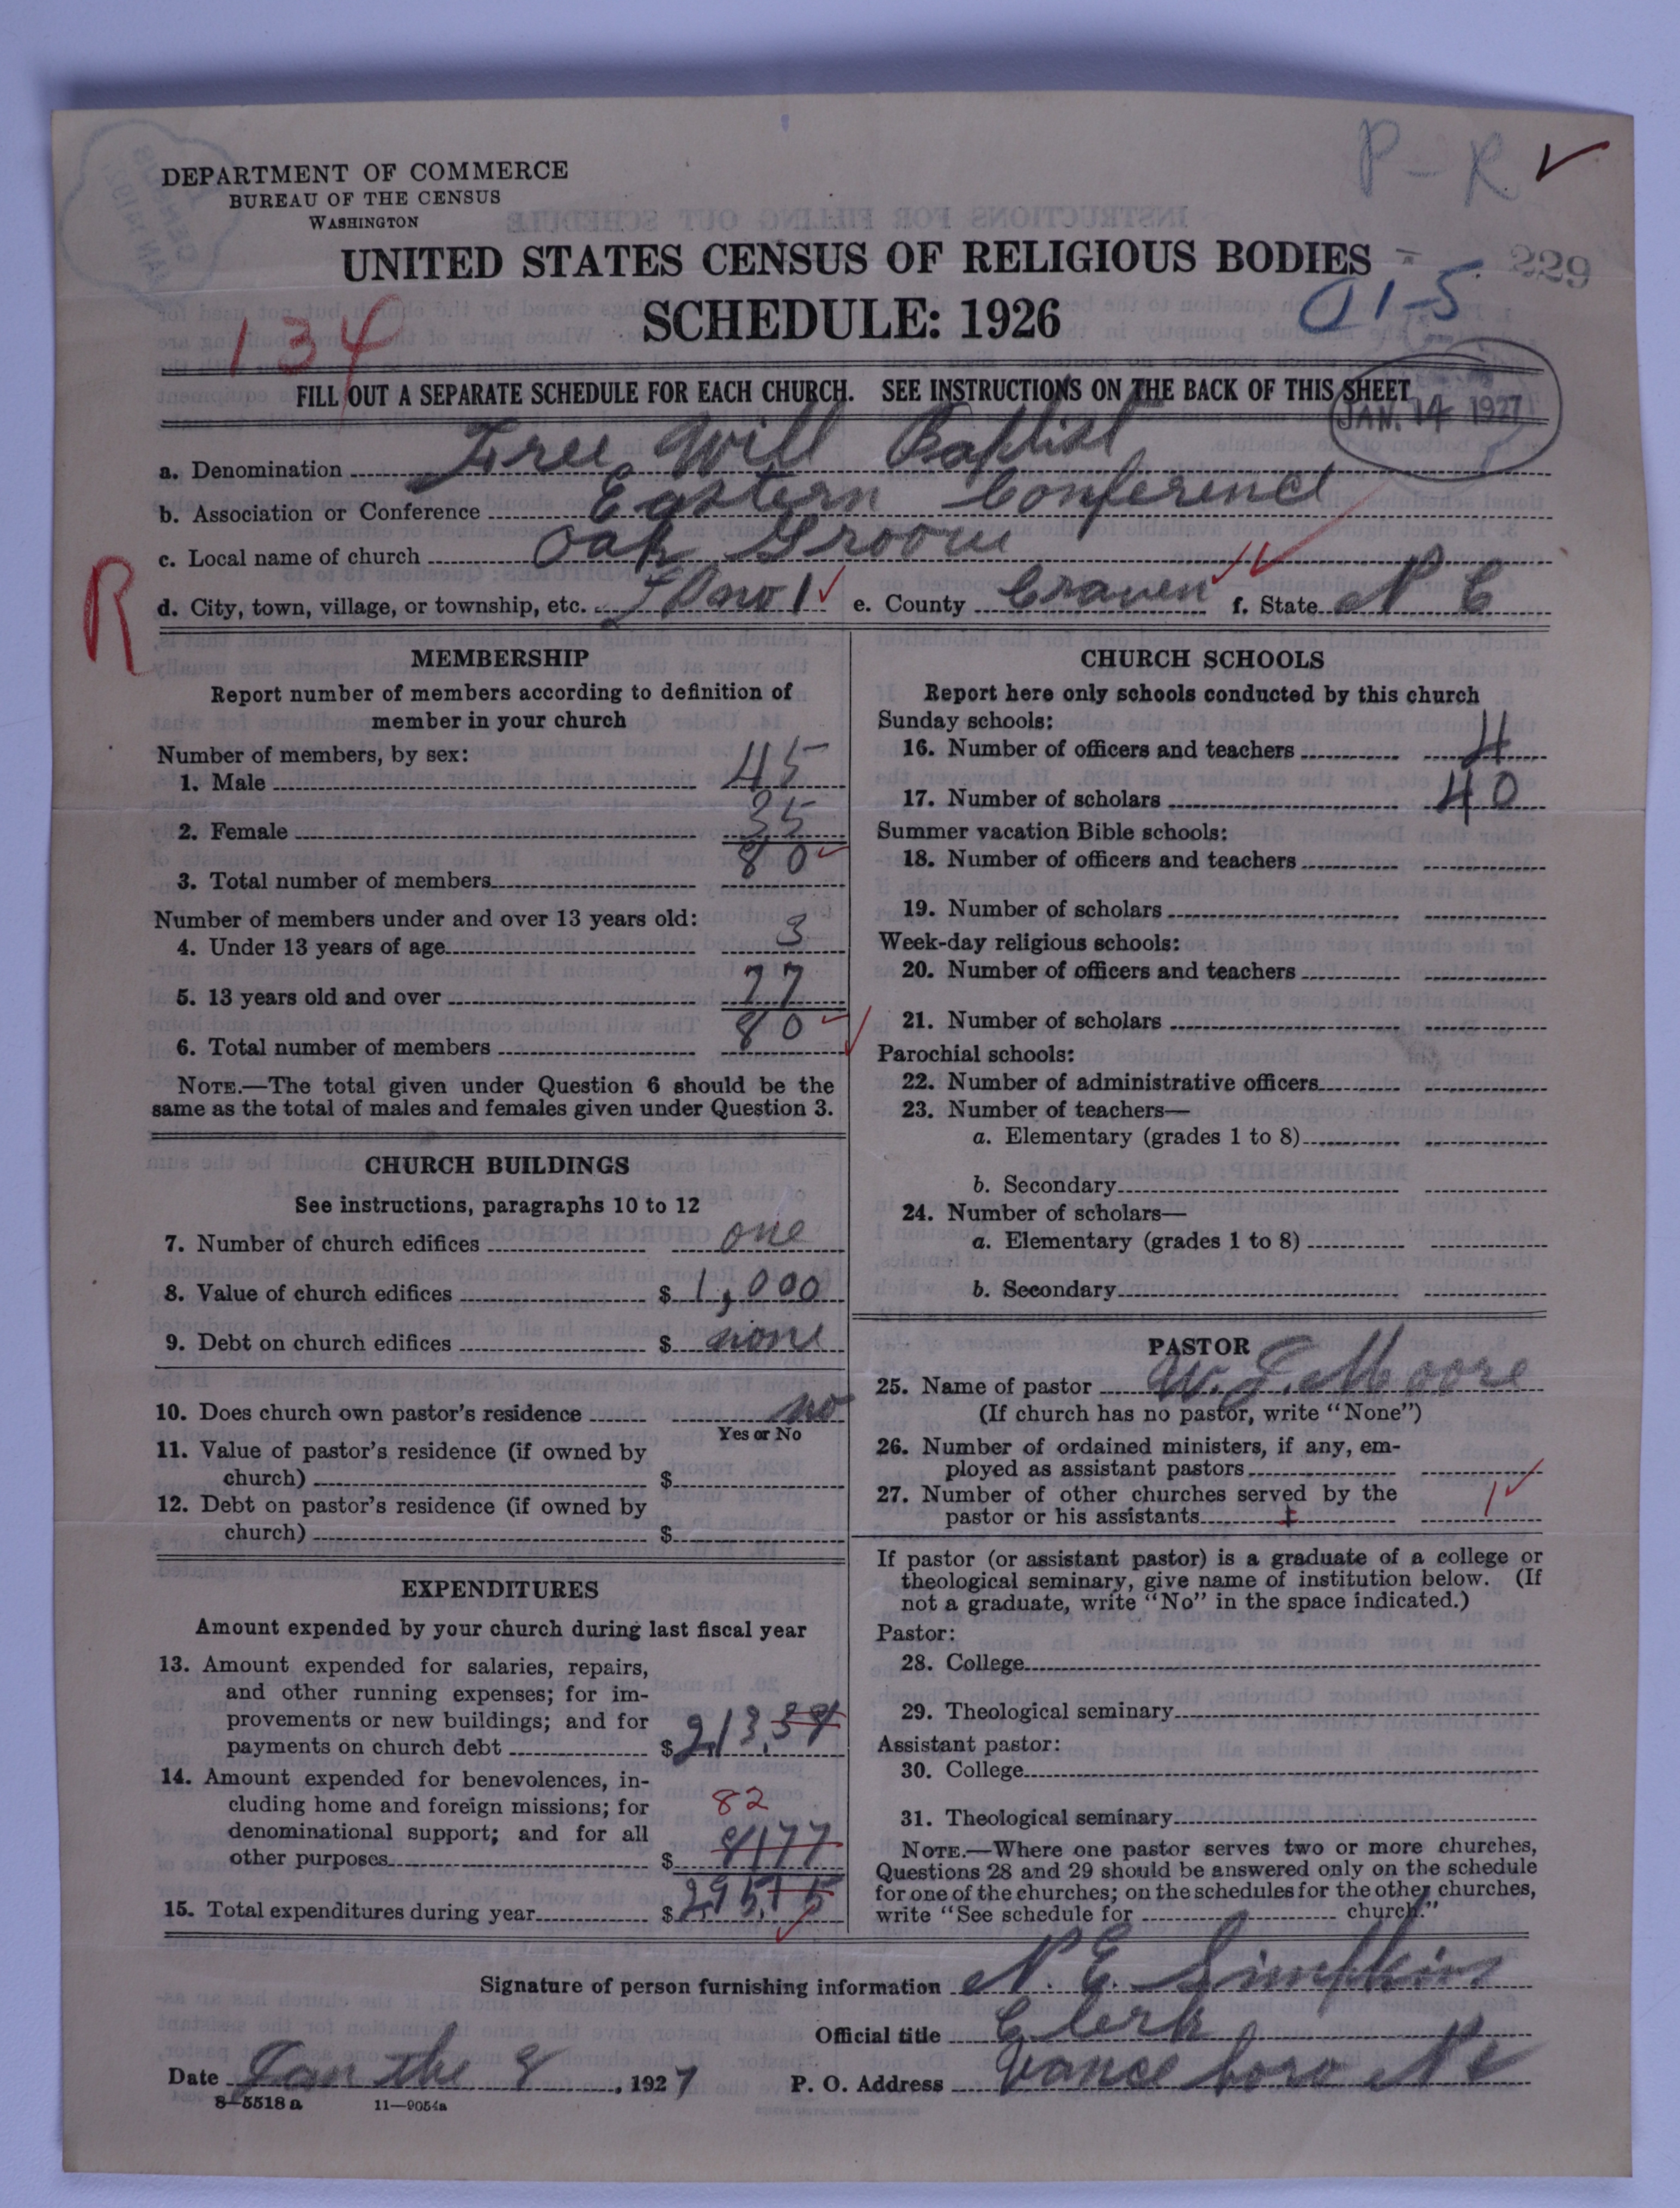 P-R ✓
DEPARTMENT OF COMMERCE
BUREAU OF THE CENSUS
WASHINGTON
UNITED STATES CENSUS OF RELIGIOUS BODIES
229
SCHEDULE: 1926
134
01-5
FILL OUT A SEPARATE SCHEDULE FOR EACH CHURCH. SEE INSTRUCTIONS ON THE BACK OF THIS SHEET
JAN. 14 1927
a. Denomination Free Will Baptist
b. Association or Conference Eastern Conference
c. Local name of church Oak Groove
R
d. City, town, village, or township, etc. no 1 ✓ e. County Craven ✓✓ f. State N C
MEMBERSHIP
Report number of members according to definition of
member in your church
Number of members, by sex:
1. Male 45
2. Female 35
3. Total number of members 80 ✓
Number of members under and over 13 years old:
4. Under 13 years of age 3
5. 13 years old and over 77
6. Total number of members 80 ✓
NOTE.—The total given under Question 6 should be the
same as the total of males and females given under Question 3.
CHURCH BUILDINGS
See instructions, paragraphs 10 to 12
7. Number of church edifices one
8. Value of church edifices $ 1,000
9. Debt on church edifices $ none
10. Does church own pastor's residence no
Yes or No
11. Value of pastor's residence (if owned by
church) $
12. Debt on pastor's residence (if owned by
church) $
EXPENDITURES
Amount expended by your church during last fiscal year
13. Amount expended for salaries, repairs,
and other running expenses; for im-
provements or new buildings; and for
payments on church debt $ 213.
14. Amount expended for benevolences, in-
cluding home and foreign missions; for 82
denominational support; and for all
other purposes $ 8177
15. Total expenditures during year $ 295.15
CHURCH SCHOOLS
Report here only schools conducted by this church
Sunday schools:
16. Number of officers and teachers 4
17. Number of scholars 40
Summer vacation Bible schools:
18. Number of officers and teachers
19. Number of scholars
Week-day religious schools:
20. Number of officers and teachers
21. Number of scholars
Parochial schools:
22. Number of administrative officers
23. Number of teachers—
a. Elementary (grades 1 to 8)
b. Secondary
24. Number of scholars—
a. Elementary (grades 1 to 8)
b. Secondary
PASTOR
25. Name of pastor W. J. Moore
(If church has no pastor, write "None")
26. Number of ordained ministers, if any, em-
ployed as assistant pastors
27. Number of other churches served by the
pastor or his assistants 1 ✓
If pastor (or assistant pastor) is a graduate of a college or
theological seminary, give name of institution below. (If
not a graduate, write "No" in the space indicated.)
Pastor:
28. College
29. Theological seminary
Assistant pastor:
30. College
31. Theological seminary
NOTE.—Where one pastor serves two or more churches,
Questions 28 and 29 should be answered only on the schedule
for one of the churches; on the schedules for the other churches,
write "See schedule for church."
Signature of person furnishing information N. E. Simpkins
Official title Clerk
Date Jan the 8, 1927 P. O. Address Vanceboro N C
8-5518a 11-9054a